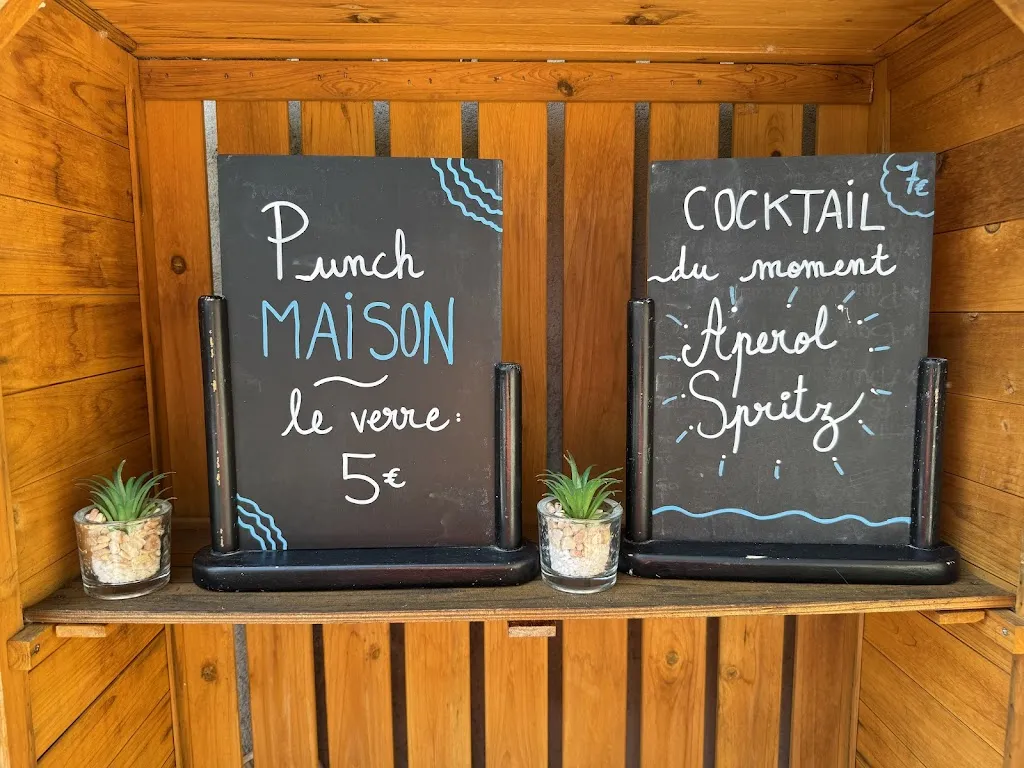 Punch
MAISON
le verre:
5€
7€
COCKTAIL
du moment
Aperol
Spritz